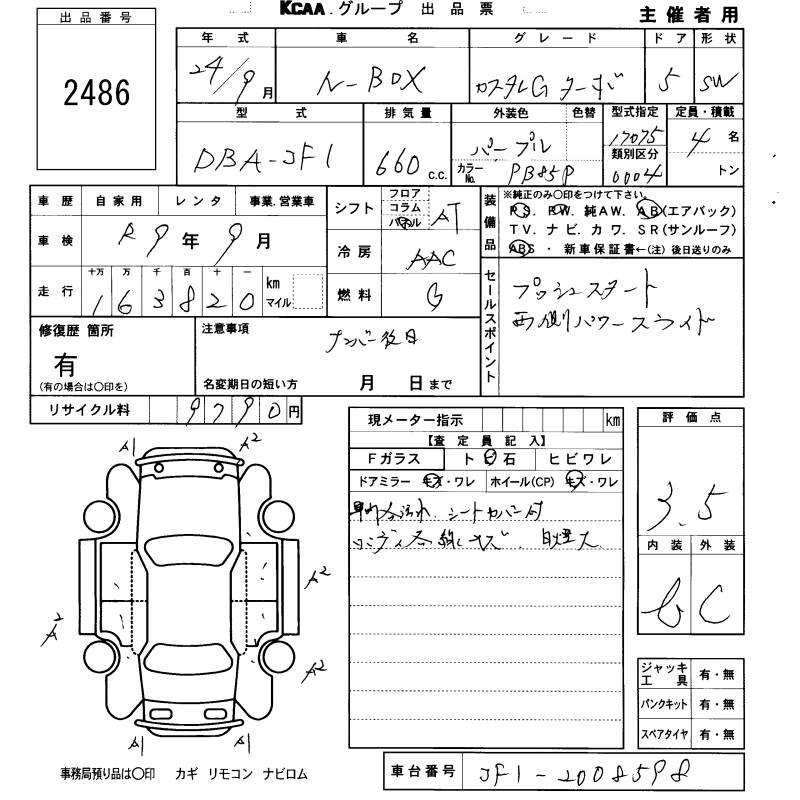 KCAA.グループ 出品票
主催者用
出品番号
2486
年式 車名 グレード ドア 形状
24/9月 N-BOX カスタムG ターボ 5 SW
型式 排気量 外装色 色替 型式指定 定員・積載
DBA-JF1 660 c.c. パープル 17075 4名
カラーNo. PB85P 類別区分 0004 トン
車歴 自家用 レンタ 事業.営業車
車検 R9年9月
走行 十万 万 千 百 十 一 km マイル
163820
シフト フロア コラム パネル AT
冷房 AAC
燃料 G
装備品 ※純正のみ○印をつけて下さい。
PS. PW. 純AW. AB(エアバック)
TV. ナビ. カワ. SR(サンルーフ)
ABS・新車保証書←(注)後日送りのみ
セールスポイント
プッシュスタート
両側パワースライド
修復歴 箇所
有
(有の場合は○印を)
注意事項
ナンバー後日
名変期日の短い方 月 日まで
リサイクル料 9790円
現メーター指示 km
【査定員記入】
Fガラス トビ石 ヒビワレ
ドアミラー キズ・ワレ ホイール(CP) キズ・ワレ
車内汚れ、シートカバー付
キズ
評価点
3.5
内装 外装
C
A1 A2
A2
A2
A2
ジャッキ工具 有・無
パンクキット 有・無
スペアタイヤ 有・無
事務局預り品は○印 カギ リモコン ナビロム
車台番号 JF1-2008598